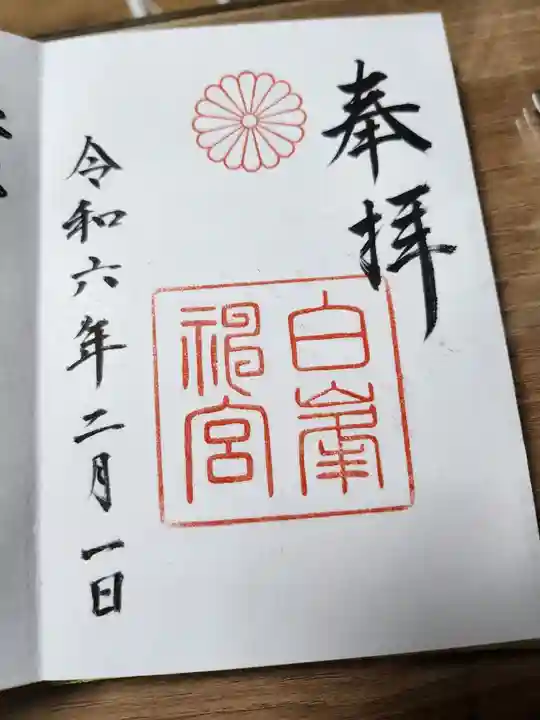 奉拝
白峯
神宮
令和六年二月一日